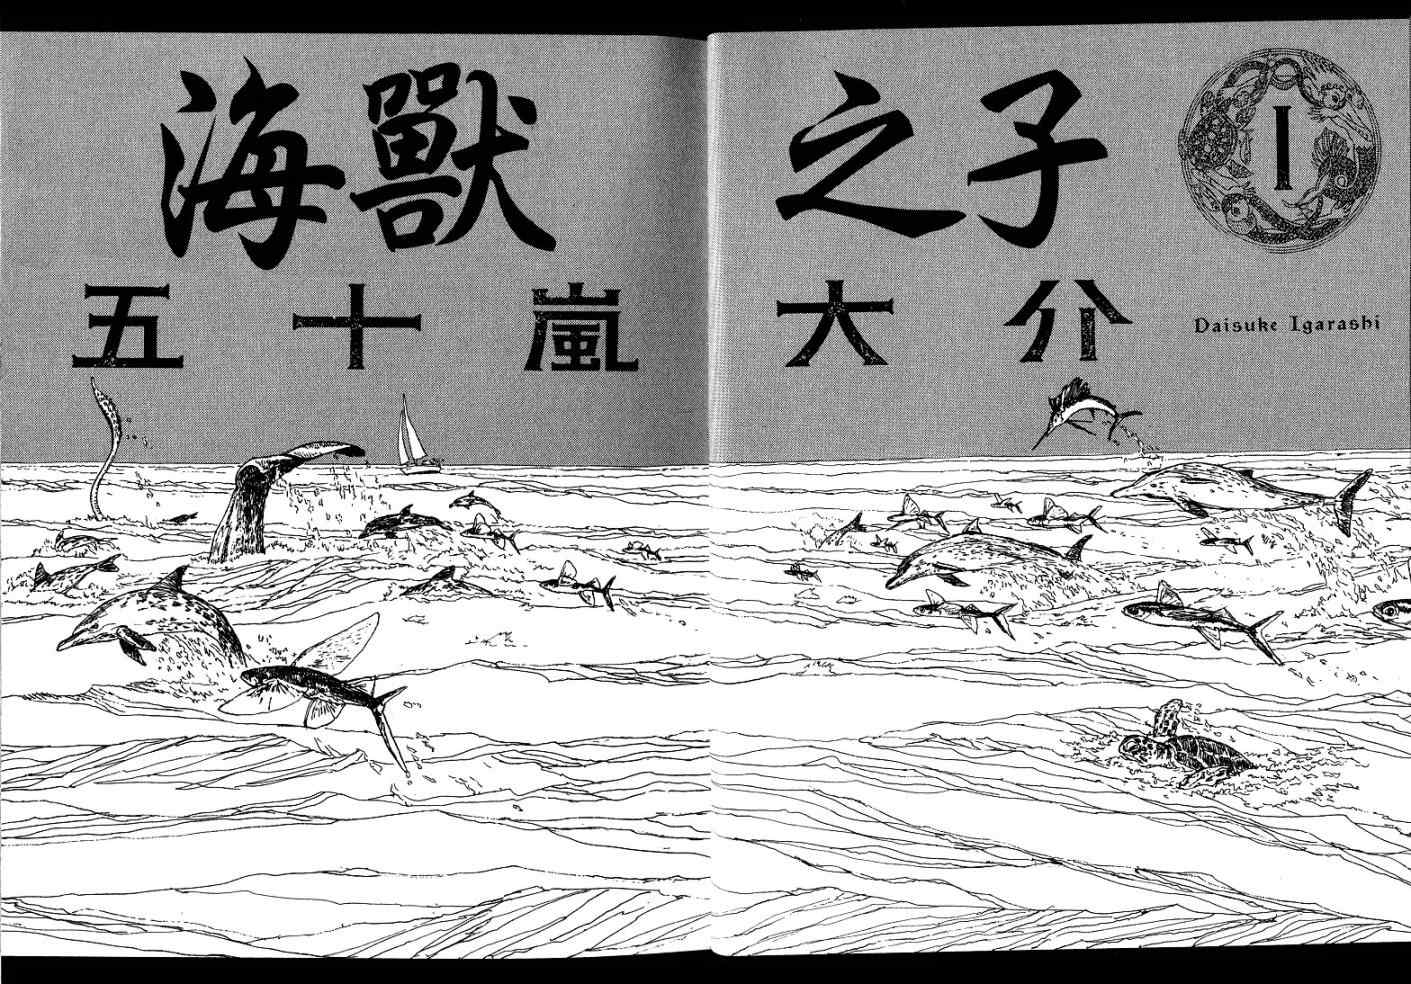 海獸之子
I
五十嵐大介
Daisuke Igarashi